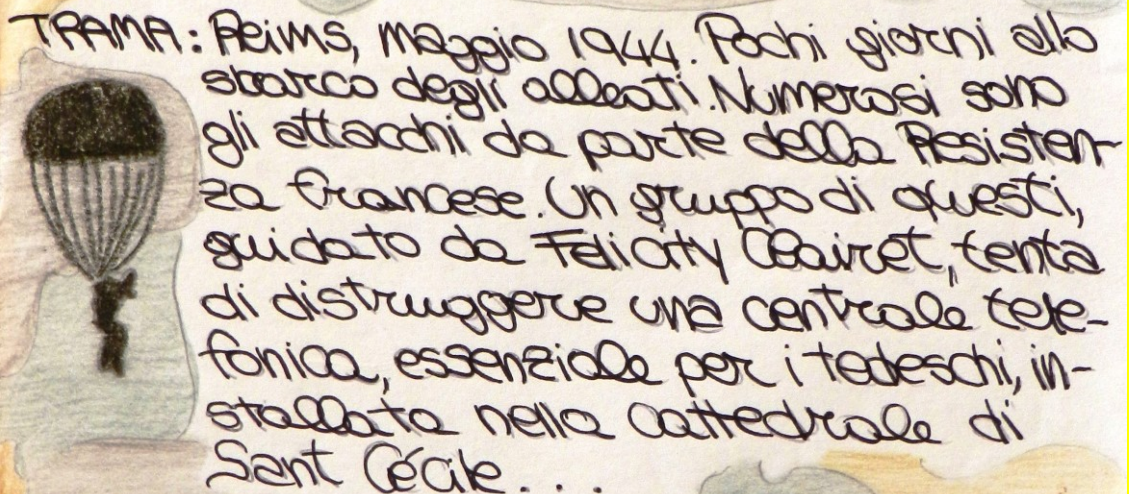 TRAMA: Reims, maggio 1944. Pochi giorni allo
sbarco degli alleati. Numerosi sono
gli attacchi da parte della Resisten-
za francese. Un gruppo di questi,
guidato da Felicity Clairet, tenta
di distruggere una centrale tele-
fonica, essenziale per i tedeschi, in-
stallata nella cattedrale di
Sant Cécile...